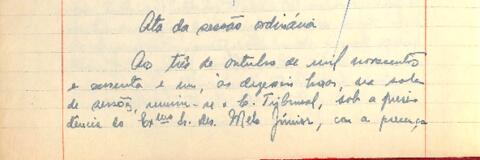 Ata da sessão ordinária
Aos três de outubro de mil novecentos
e sessenta e um, às dezesseis horas, na sala
de sessões, reuniu-se o E. Tribunal, sob a presi
dência do Exmo Sr. Des. Melo Júnior, com a presença